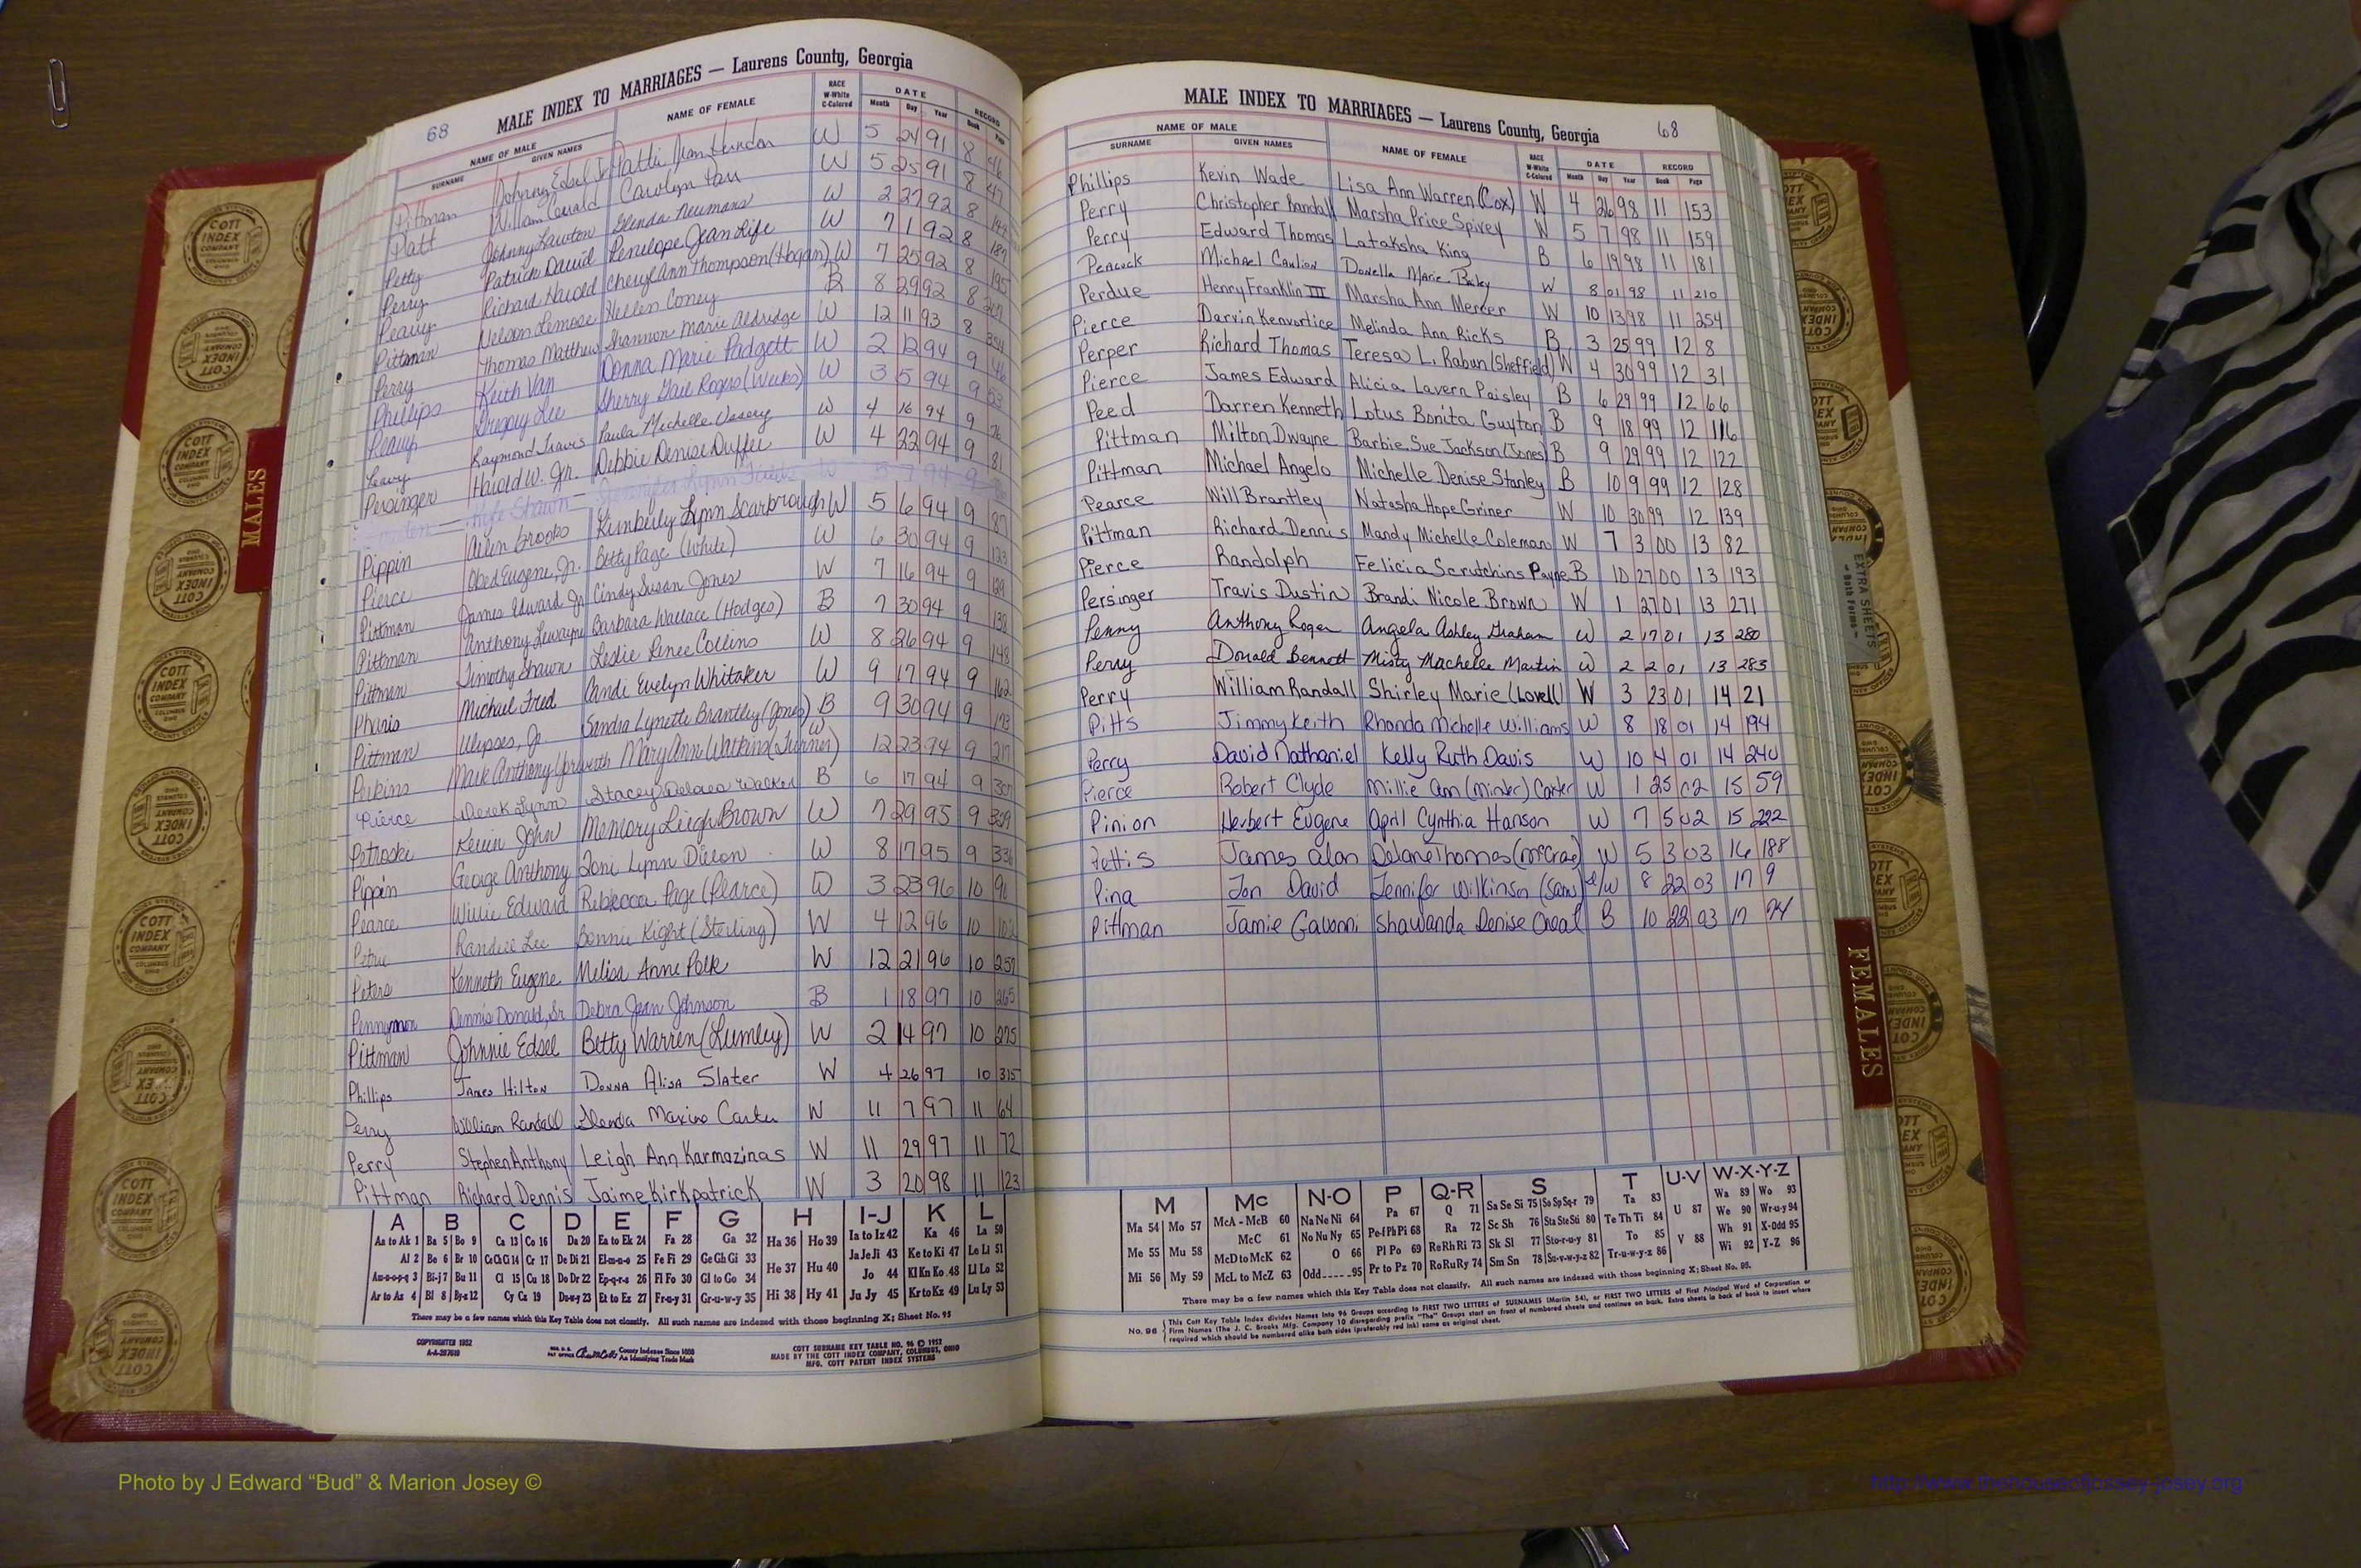 68
MALE INDEX TO MARRIAGES — Laurens County, Georgia
NAME OF MALE NAME OF FEMALE RACE W-White C-Colored DATE RECORD
SURNAME GIVEN NAMES Month Day Year Book Page
Pittman Johnny Edsel Jr Pattie Jean Herndon W 5 24 91 8 46
Patt William Gerald Carolyn W 5 25 91 8 47
Petty Johnny Lawton Glenda Neumans W 2 27 92 8
Perry Patrick David Penelope Jean Rife W 7 1 92 8 187
Peavy Richard Harold Cheryl Ann Thompson (Hogan) W 7 25 92 8 195
Pittman Nelson Lemose Hellen Coney B 8 29 92 8
Perry Thomas Matthew Shannon Marie Aldridge W 12 11 93 8
Phillips Keith Van Donna Marie Padgett W 2 12 94 9 46
Peavy Gregory Lee Sherry Gail Rogers (Weeks) W 3 5 94 9 53
Peavy Raymond Travis Paula Michelle Vassey W 4 16 94 9
Persinger Harold W. Jr. Debbie Denise Duffee W 4 22 94 9 81
Kyle Shawn Jennifer Lynn W 5 7 94 9
Pippin Allen Brooks Kimberly Lynn Scarbrough W 5 6 94 9 87
Pierce Obed Eugene, Jr. Betty Page (White) W 6 30 94 9 123
Pittman James Edward Jr Cindy Susan Jones W 7 16 94 9 129
Pittman Anthony Lewayne Barbara Wallace (Hodges) B 7 30 94 9 138
Pittman Timothy Shawn Leslie Renee Collins W 8 26 94 9 148
Pharis Michael Fred Candi Evelyn Whitaker W 9 17 94 9 162
Pittman Ulysses, Jr. Sandra Lynette Brantley (Jones) B 9 30 94 9 173
Perkins Mark Anthony Mary Ann Watkins (Turner) W 12 23 94 9 217
Pierce Derek Lynn Stacey Delores Walker B 6 17 94 9 307
Petroski Kevin John Memory Leigh Brown W 7 29 95 9 329
Pippin George Anthony Toni Lynn Dixon W 8 17 95 9 336
Pearce Willie Edward Rebecca Page (Pearce) W 3 23 96 10 91
Petrie Randell Lee Bonnie Kight (Sterling) W 4 12 96 10 102
Peters Kenneth Eugene Melisa Anne Polk W 12 21 96 10 257
Pennymon Dennis Donald, Sr. Debra Jean Johnson B 1 18 97 10 265
Pittman Johnnie Edsel Betty Warren (Lumley) W 2 14 97 10 275
Phillips James Hilton Donna Alisa Slater W 4 26 97 10 315
Perry William Randall Glenda Maxine Carter W 11 7 97 11 64
Perry Stephen Anthony Leigh Ann Karmazinas W 11 29 97 11 72
Pittman Richard Dennis Jaime Kirkpatrick W 3 20 98 11 123
A B C D E F G H I-J K L
Aa to Ak 1 Ba 5 Bo 9 Ca 13 Co 16 Da 20 Ea to Ek 24 Fa 28 Ga 32 Ha 36 Ho 39 Ia to Iz 42 Ka 46 La 50
Al 2 Be 6 Br 10 Ce Ch Ci 14 Cr 17 De Di 21 El-m-n-o 25 Fe Fi 29 Ge Gh Gi 33 He 37 Hu 40 Ja Je Ji 43 Ke to Ki 47 Le Li 51
Am-n-o-p-q 3 Bi-j 7 Bu 11 Cl 15 Cu 18 Do Dr 22 Ep-q-r-s 26 Fl Fo 30 Gl to Go 34 Hi 38 Hy 41 Jo 44 Kl Kn Ko 48 Ll Lo 52
Ar to Az 4 Bl 8 By-z 12 Cy Cz 19 Du-w-y 23 Et to Ez 27 Fr-u-y 31 Gr-u-w-y 35 Ju Jy 45 Kr to Kz 49 Lu Ly 53
There may be a few names which this Key Table does not classify. All such names are indexed with those beginning X; Sheet No. 95
COPYRIGHTED 1952
A-A-207610
County Indexes Since 1888
An Identifying Trade Mark
COTT SURNAME KEY TABLE NO. 96 © 1952
MADE BY THE COTT INDEX COMPANY, COLUMBUS, OHIO
MFG. COTT PATENT INDEX SYSTEMS
MALE INDEX TO MARRIAGES — Laurens County, Georgia
68
NAME OF MALE NAME OF FEMALE RACE W-White C-Colored DATE RECORD
SURNAME GIVEN NAMES Month Day Year Book Page
Phillips Kevin Wade Lisa Ann Warren (Cox) W 4 26 98 11 153
Perry Christopher Randall Marsha Price Spivey W 5 7 98 11 159
Perry Edward Thomas Lataksha King B 6 19 98 11 181
Peacock Michael Donella Marie W 8 01 98 11 210
Perdue Henry Franklin III Marsha Ann Mercer W 10 13 98 11 254
Pierce Darvin Kenvortice Melinda Ann Ricks B 3 25 99 12 8
Perper Richard Thomas Teresa L. Rabun (Sheffield) W 4 30 99 12 31
Pierce James Edward Alicia Lavern Paisley B 6 29 99 12 66
Peed Darren Kenneth Lotus Bonita Guyton B 9 18 99 12 116
Pittman Milton Dwayne Barbie Sue Jackson (Jones) B 9 29 99 12 122
Pittman Michael Angelo Michelle Denise Stanley B 10 9 99 12 128
Pearce Will Brantley Natasha Hope Griner W 10 30 99 12 139
Pittman Richard Dennis Mandy Michelle Coleman W 7 3 00 13 82
Pierce Randolph Felicia Scrutchins Payne B 10 27 00 13 193
Persinger Travis Dustin Brandi Nicole Brown W 1 27 01 13 271
Penny Anthony Roger Angela Ashley Graham W 2 17 01 13 280
Perry Donald Bennett Misty Machelle Martin W 2 2 01 13 283
Perry William Randall Shirley Marie (Lovell) W 3 23 01 14 21
Pitts Jimmy Keith Rhonda Michelle Williams W 8 18 01 14 194
Perry David Nathaniel Kelly Ruth Davis W 10 4 01 14 240
Pierce Robert Clyde Millie Ann (Minter) Carter W 1 25 02 15 59
Pinion Herbert Eugene April Cynthia Hanson W 7 5 02 15 222
Pettis James Alan Delane Thomas (McCrae) W 5 3 03 16 188
Pina Jon David Jennifer Wilkinson (Sams) W 8 22 03 17 9
Pittman Jamie Gavonni Shawanda Denise Oneal B 10 22 03 17 74
M Mc N-O P Q-R S T U-V W-X-Y-Z
Ma 54 Mo 57 McA - McB 60 Na Ne Ni 64 Pa 67 Q 71 Sa Se Si 75 So Sp Sq-r 79 Ta 83 U 87 Wa 89 Wo 93
Me 55 Mu 58 McC 61 No Nu Ny 65 Pe-f Ph Pi 68 Ra 72 Sc Sh 76 Sta Ste Sti 80 Te Th Ti 84 V 88 We 90 Wr-u-y 94
Mi 56 My 59 McD to McK 62 O 66 Pl Po 69 Re Rh Ri 73 Sk Sl 77 Sto-r-u-y 81 To 85 Wh 91 X-Odd 95
McL to McZ 63 Odd 95 Pr to Pz 70 Ro Ru Ry 74 Sm Sn 78 Su-v-w-y-z 82 Tr-u-w-y-z 86 Wi 92 Y-Z 96
There may be a few names which this Key Table does not classify. All such names are indexed with those beginning X; Sheet No. 95.
No. 96 This Cott Key Table Index divides Names Into 96 Groups according to FIRST TWO LETTERS of SURNAMES (Martin 54), or FIRST TWO LETTERS of First Principal Word of Corporation or
Firm Names (The J. C. Brooks Mfg. Company 10 disregarding prefix "The" Groups start on front of numbered sheets and continue on back. Extra sheets in back of book to insert where
required which should be numbered alike both sides (preferably red ink) same as original sheet.
MALES
FEMALES
EXTRA SHEETS
— Both Forms —
COTT INDEX COMPANY COLUMBUS OHIO
Photo by J Edward “Bud” & Marion Josey ©
http://www.thehouseofjossey-josey.org